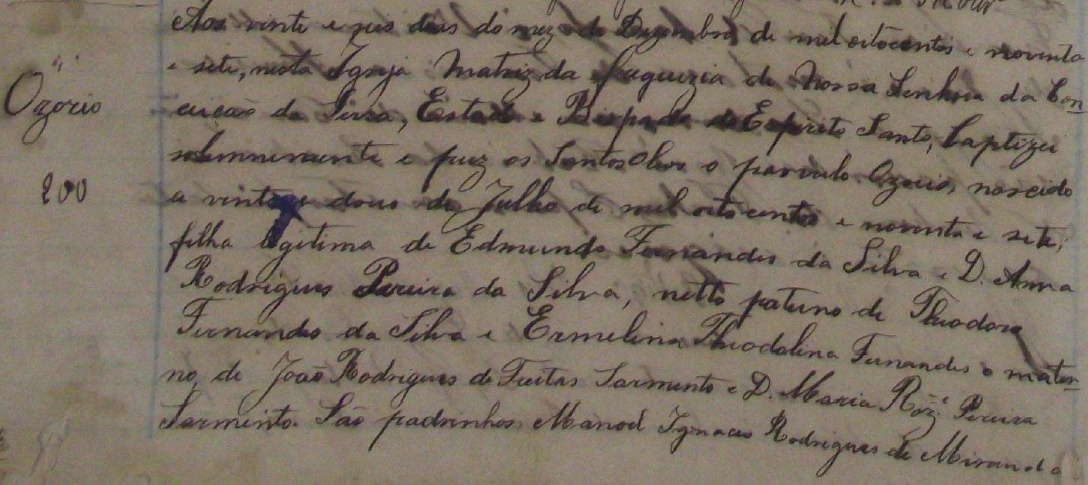 Ozorio
200
Aos vinte e seis dias do mez de Dezembro de mil oitocentos e noventa
e sete, nesta Igreja Matriz da freguezia de Nossa Senhora da Con
ceicão da Serra, Estado e Bispado do Espirito Santo, baptizei
solemnemente e puz os Santos Oleos o parvulo Ozorio, nascido
a vinte e dous de Julho de mil oitocentos e noventa e sete,
filho legitimo de Edmundo Fernandes da Silva e D. Anna
Rodrigues Pereira da Silva, netto paterno de Theodoro
Fernandes da Silva e Ermelina Theodolina Fernandes e mater
no, de João Rodrigues de Freitas Sarmento e D. Maria Roz.ᵉ Pereira
Sarmento. São padrinhos Manoel Ignacio Rodrigues de Miranda